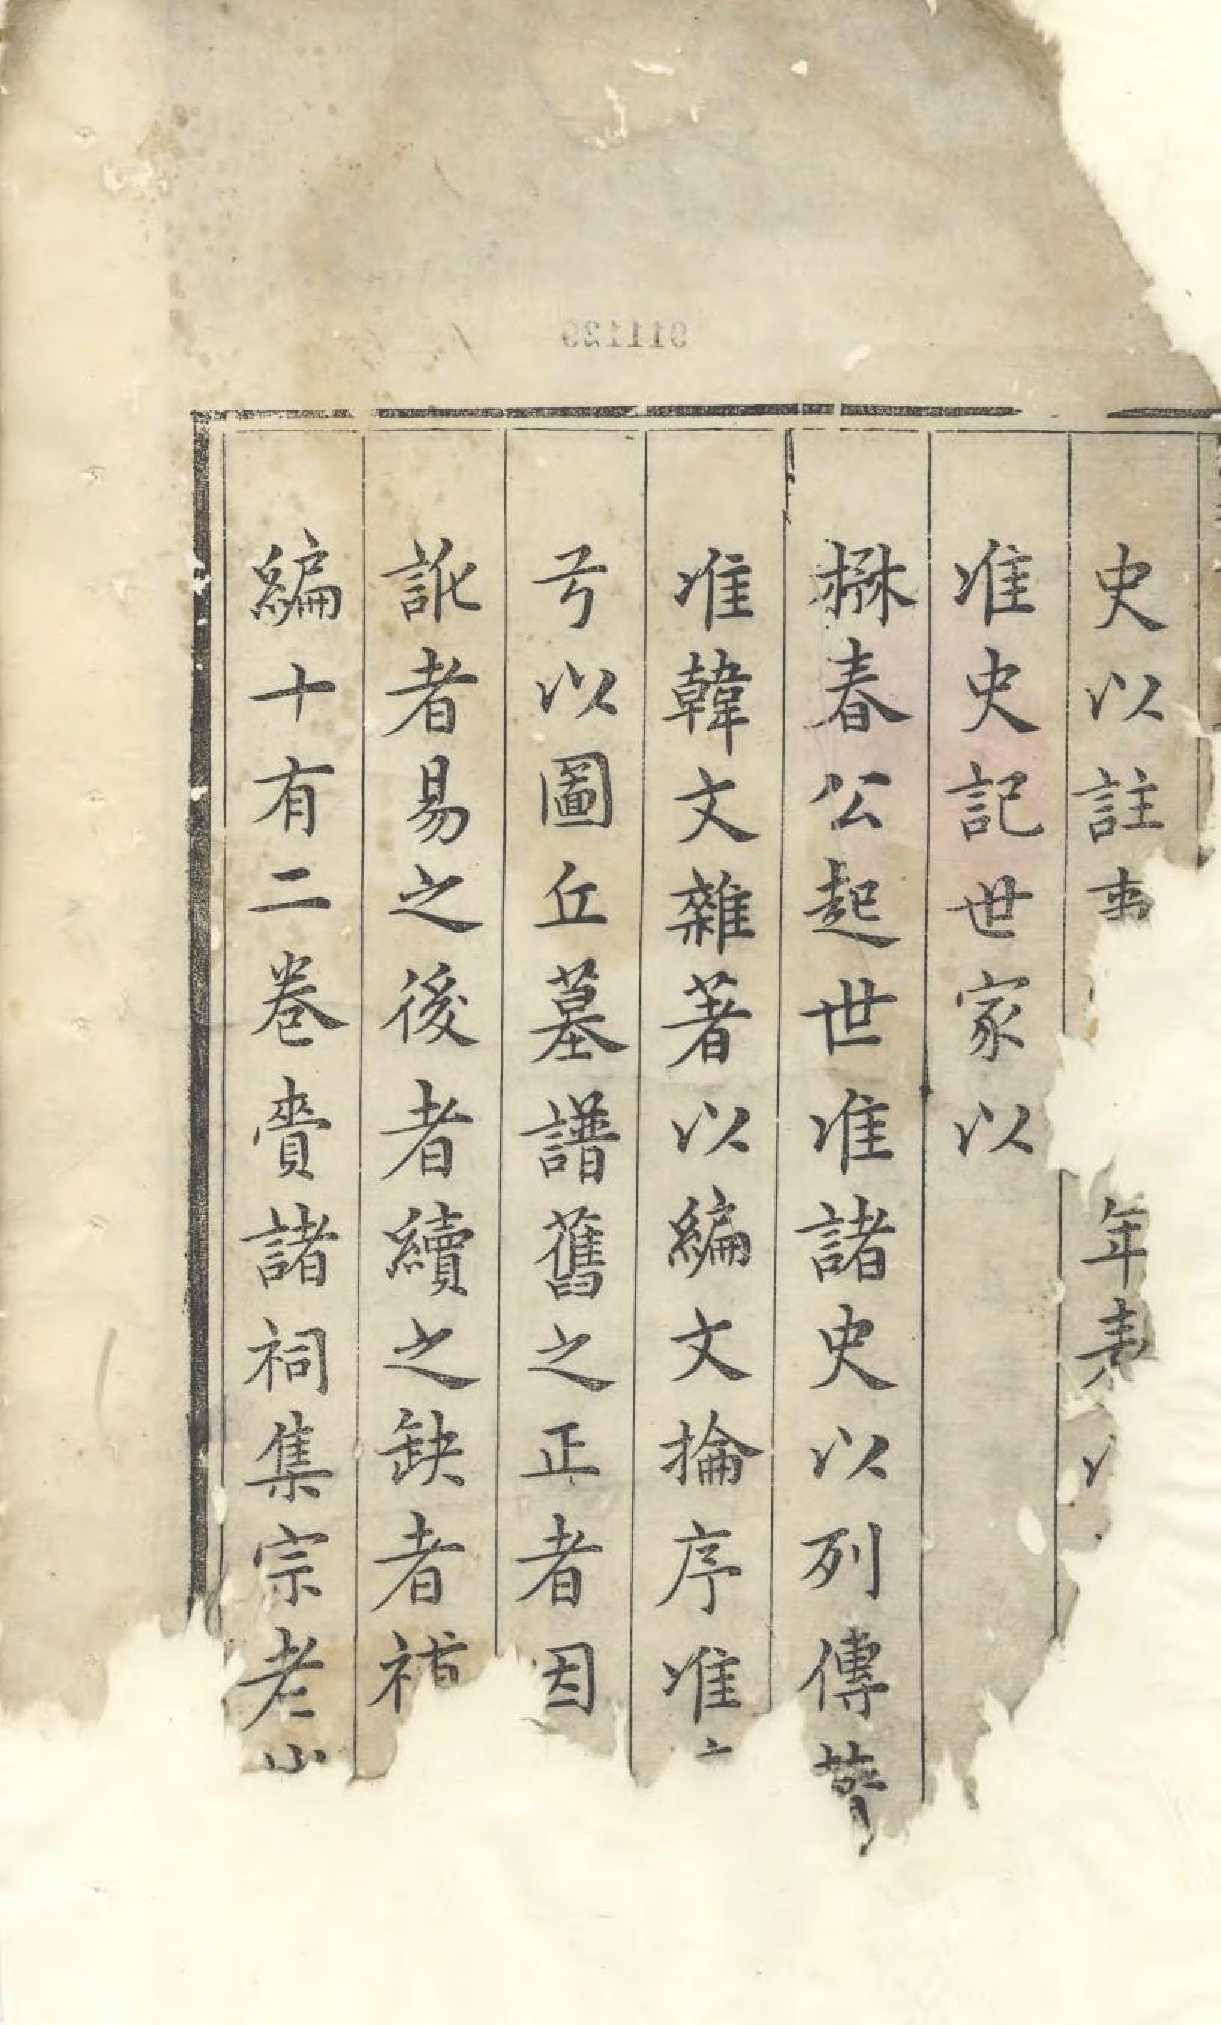 史以註 年表
准史記世家以
楙春公起世准諸史以列傳
准韓文雜著以編文掄序准
号以圖丘墓譜舊之正者因
訛者易之後者續之缺者補
編十有二卷賫諸祠集宗老
911129